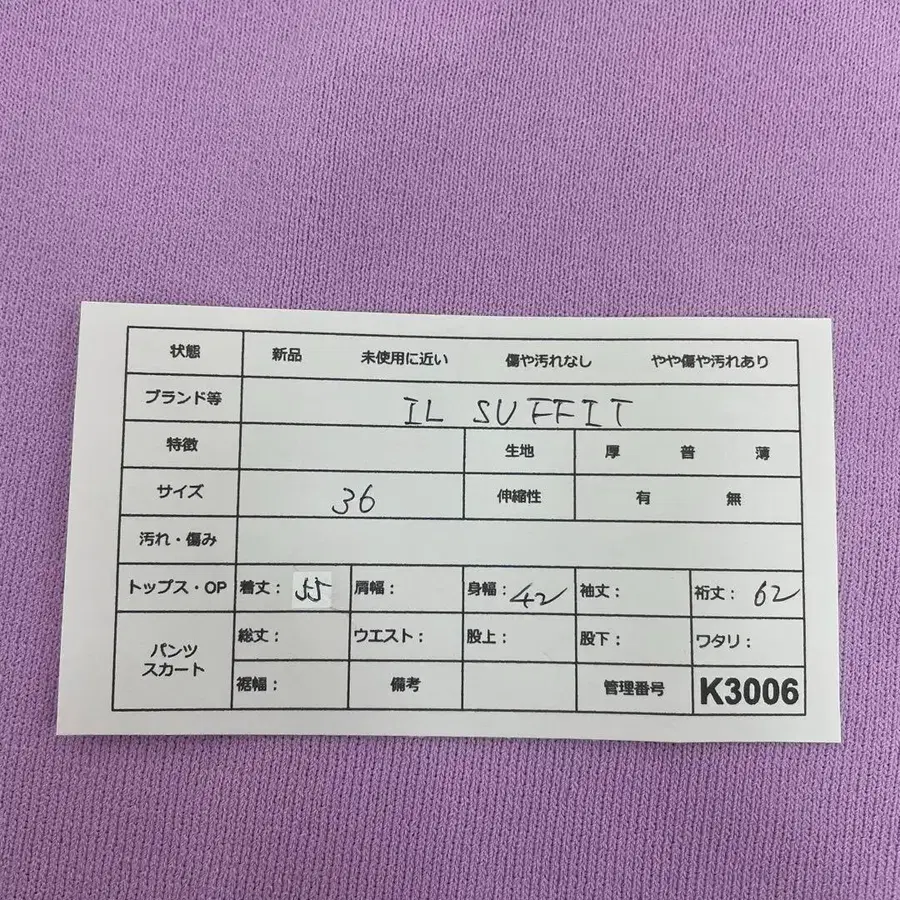 状態 新品 未使用に近い 傷や汚れなし やや傷や汚れあり
ブランド等 IL SUFFIT
特徴 生地 厚 普 薄
サイズ 36 伸縮性 有 無
汚れ・傷み
トップス・OP 着丈: 55 肩幅: 身幅: 42 袖丈: 裄丈: 62
パンツ スカート 総丈: ウエスト: 股上: 股下: ワタリ:
裾幅: 備考 管理番号 K3006